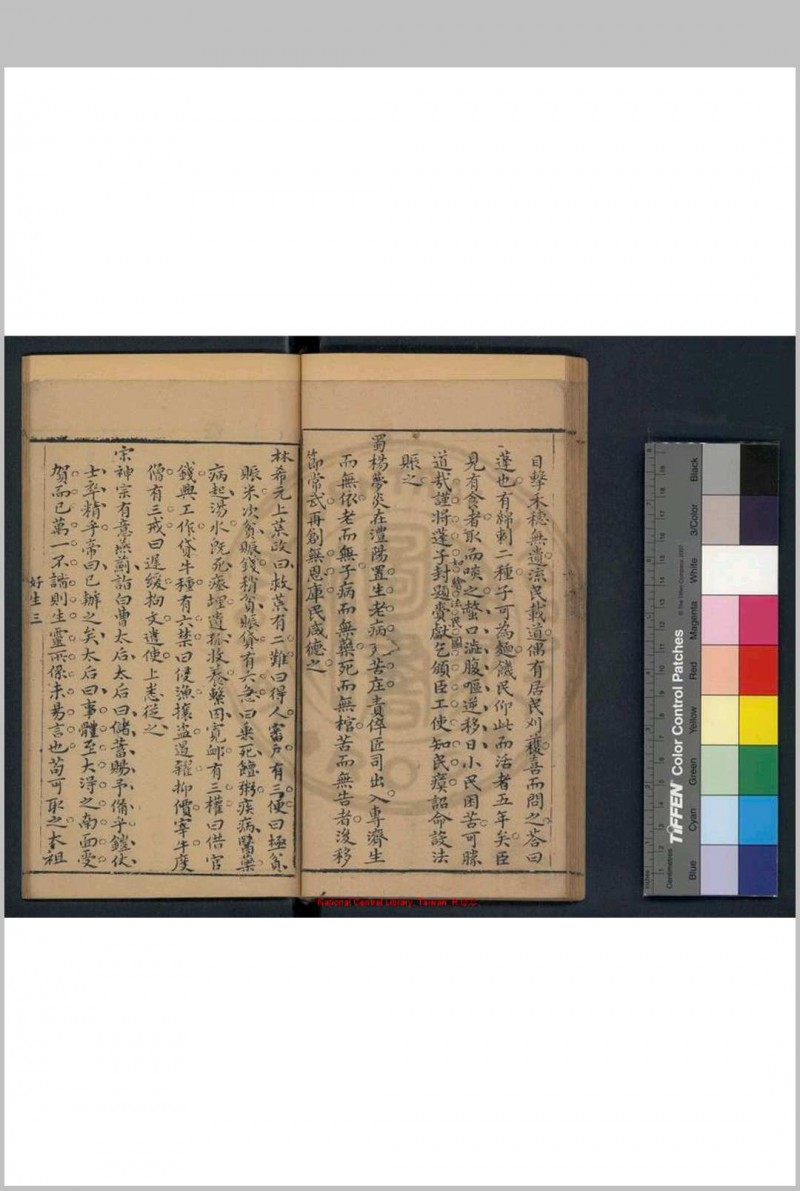 目擊禾穗無遺流民載道偶有居民刈穫喜而問之答曰
蓬也有綿刺二種子可為麵饑民仰此而活者五年矣臣
見有食者取而啖之螫口澁腹嘔逆移日小民困苦可勝
道哉謹將蓬子封題賫獻乞頒臣工使知民瘼詔命設法
如繪流民圖
賑之
蜀楊夢炎在澧陽置生老病死苦庄責倅匠司出入專濟生
而無依老而無子病而無藥死而無棺苦而無告者後移
節常武再創無恩庫民咸德之
林希元上荒政曰救荒有二難曰得人審戶有三便曰極貧
賑米次貧賑錢稍貧賑貸有六急曰垂死饘粥疾病醫藥
病起湯水既死瘞埋遺孤收養繫囚寬卹有三權曰借官
錢興工作貸牛種有六禁曰侵漁攘盜遏糶抑價宰牛度
僧有三戒曰遲緩拘文遣使上悉從之
宗神宗有意燕薊詣白曹太后太后曰儲蓄賜予備乎鎧仗
士卒精乎帝曰已辦之矣太后曰事體至大淂之南面受
賀而已萬一不諧則生靈所係未易言也苟可取之太祖
好生 三
National Central Library, Taiwan, R.O.C.
Inches
Centimetres
TIFFEN Color Control Patches
© The Tiffen Company, 2007
Blue
Cyan
Green
Yellow
Red
Magenta
White
3/Color
Black